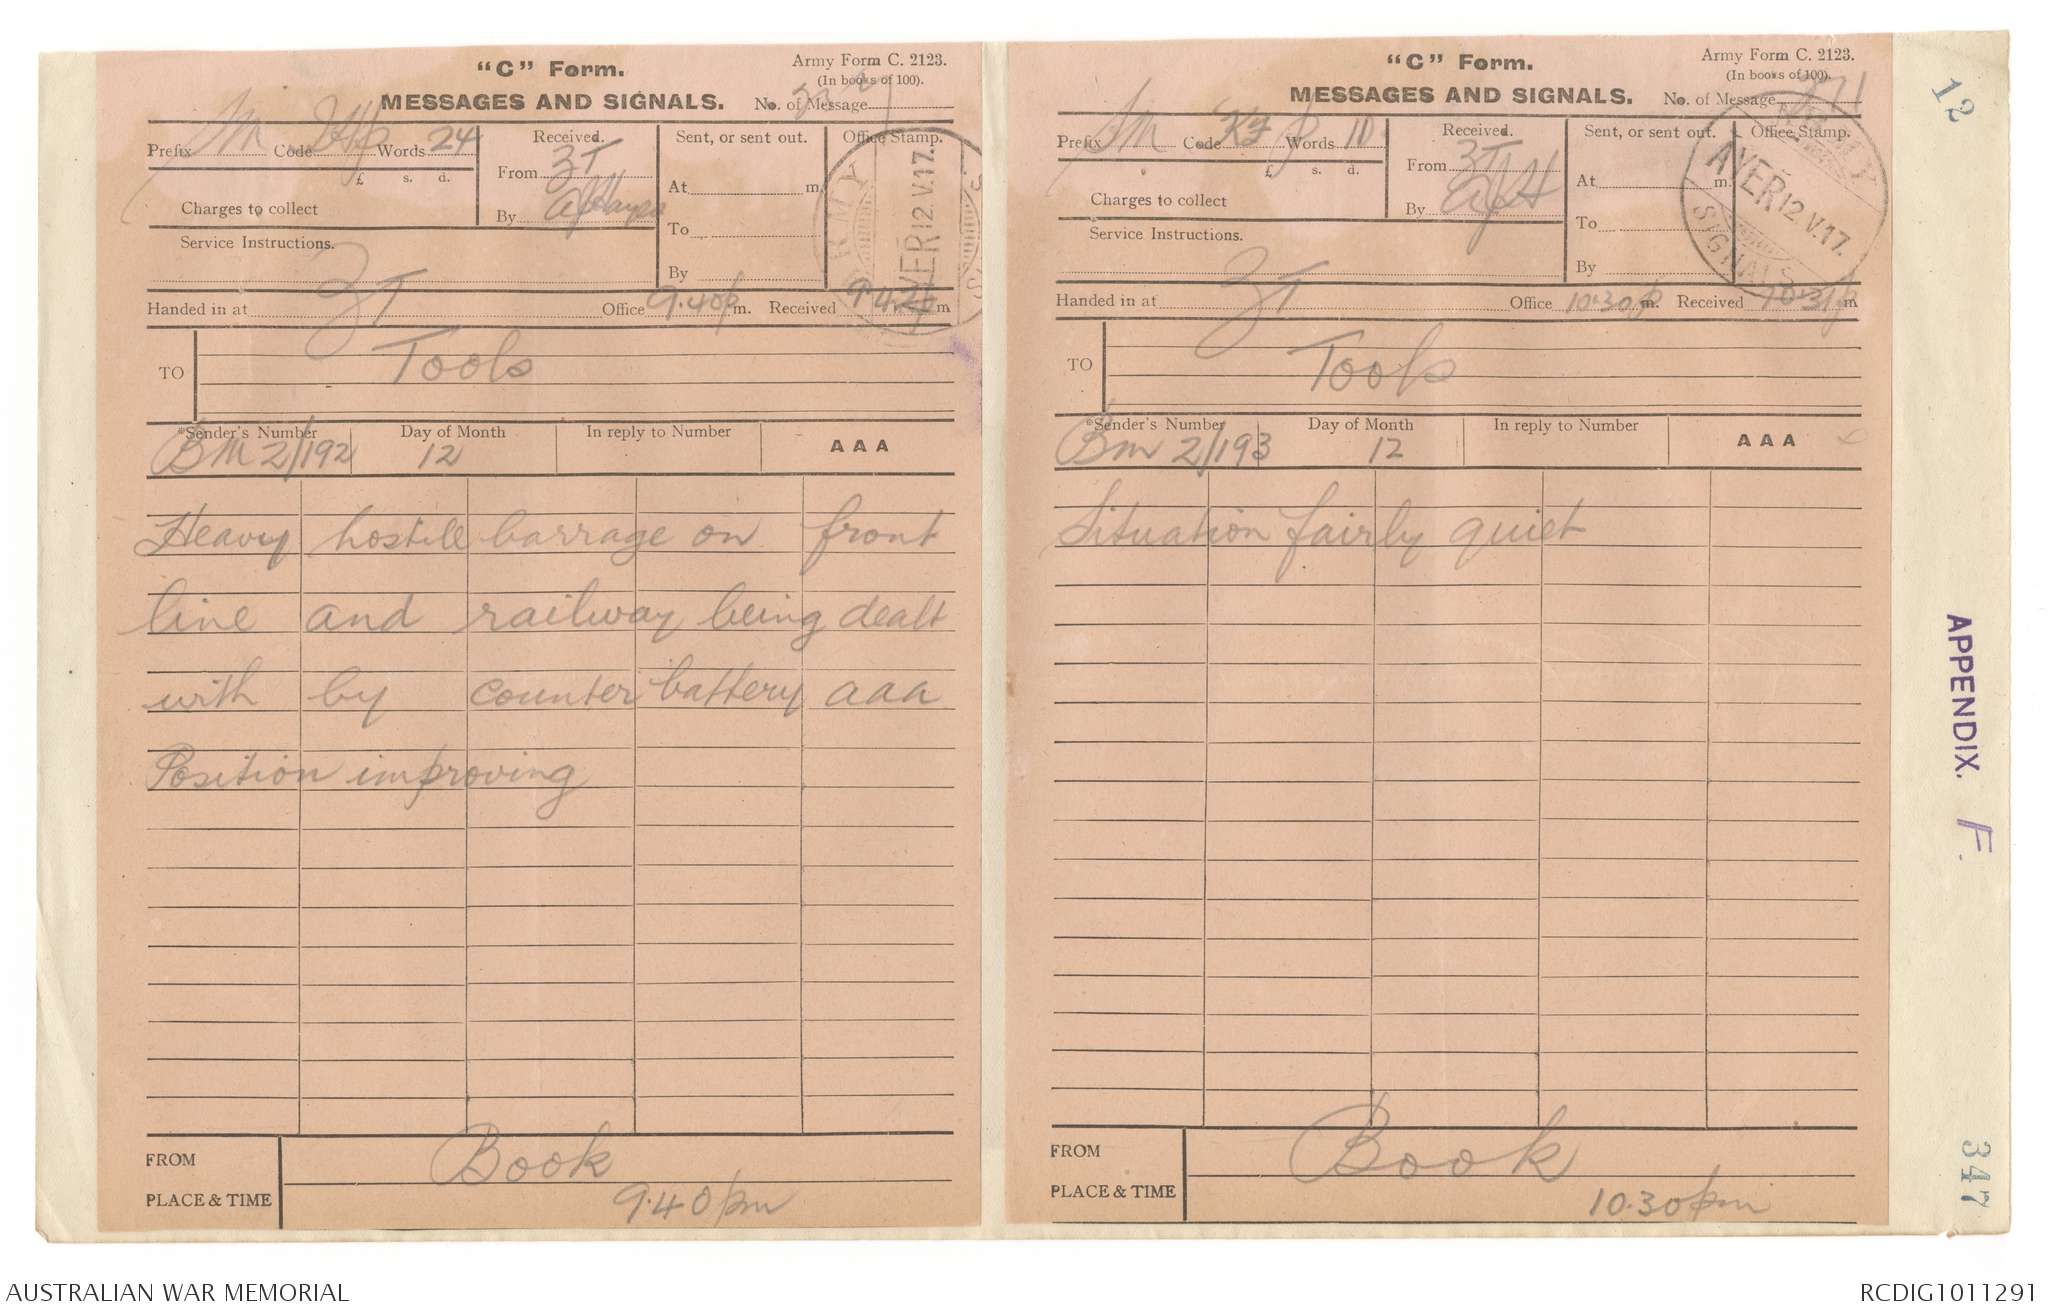 "C" Form.
Army Form C. 2123.
(In books of 100).
MESSAGES AND SIGNALS.
No. of Message
Prefix Sm Code Words 24
Received.
From ZT
By
Sent, or sent out.
At m.
To
By
Office Stamp.
ARMY
AYER 12.V.17.
£ s. d.
Charges to collect
Service Instructions.
ZT
Handed in at Office 9.40p m. Received m
TO Tools
*Sender's Number Day of Month In reply to Number AAA
BM 2/192 12
Heavy hostile barrage on front
line and railway being dealt
with by counter battery aaa
Position improving
FROM Book
PLACE & TIME 9.40pm
"C" Form.
Army Form C. 2123.
(In books of 100).
MESSAGES AND SIGNALS.
No. of Message
Prefix Sm Code Words 10
Received.
From ZT
By
Sent, or sent out.
At m.
To
By
Office Stamp.
ARMY
AYER 12.V.17.
SIGNALS
£ s. d.
Charges to collect
Service Instructions.
ZT
Handed in at Office 10.30p m. Received 10.31p m
TO Tools
*Sender's Number Day of Month In reply to Number AAA
Bm 2/193 12
Situation fairly quiet
FROM Book
PLACE & TIME 10.30pm
12
APPENDIX. F.
347
AUSTRALIAN WAR MEMORIAL
RCDIG1011291